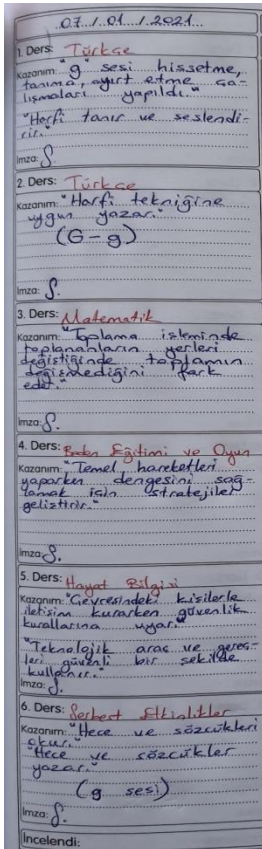 07./01./2021
1. Ders: Türkçe
Kazanım: "g" sesi hissetme,
tanıma, ayırt etme ça-
lışmaları yapıldı."
"Harfi tanır ve seslendi-
rir."
İmza:
2. Ders: Türkçe
Kazanım: "Harfi tekniğine
uygun yazar."
(G-g)
İmza:
3. Ders: Matematik
Kazanım: "Toplama işleminde
toplananların yerleri
değiştiğinde toplamın
değişmediğini fark
eder."
İmza:
4. Ders: Beden Eğitimi ve Oyun
Kazanım: "Temel hareketleri
yaparken dengesini sağ-
lamak için stratejiler
geliştirir."
İmza:
5. Ders: Hayat Bilgisi
Kazanım: "Çevresindeki kişilerle
iletişim kurarken güvenlik
kurallarına uyar."
"Teknolojik araç ve gereç-
leri güvenli bir şekilde
kullanır."
İmza:
6. Ders: Serbest Etkinlikler
Kazanım: "Hece ve sözcükleri
okur."
"Hece ve sözcükler
yazar."
(g sesi)
İmza:
İncelendi: